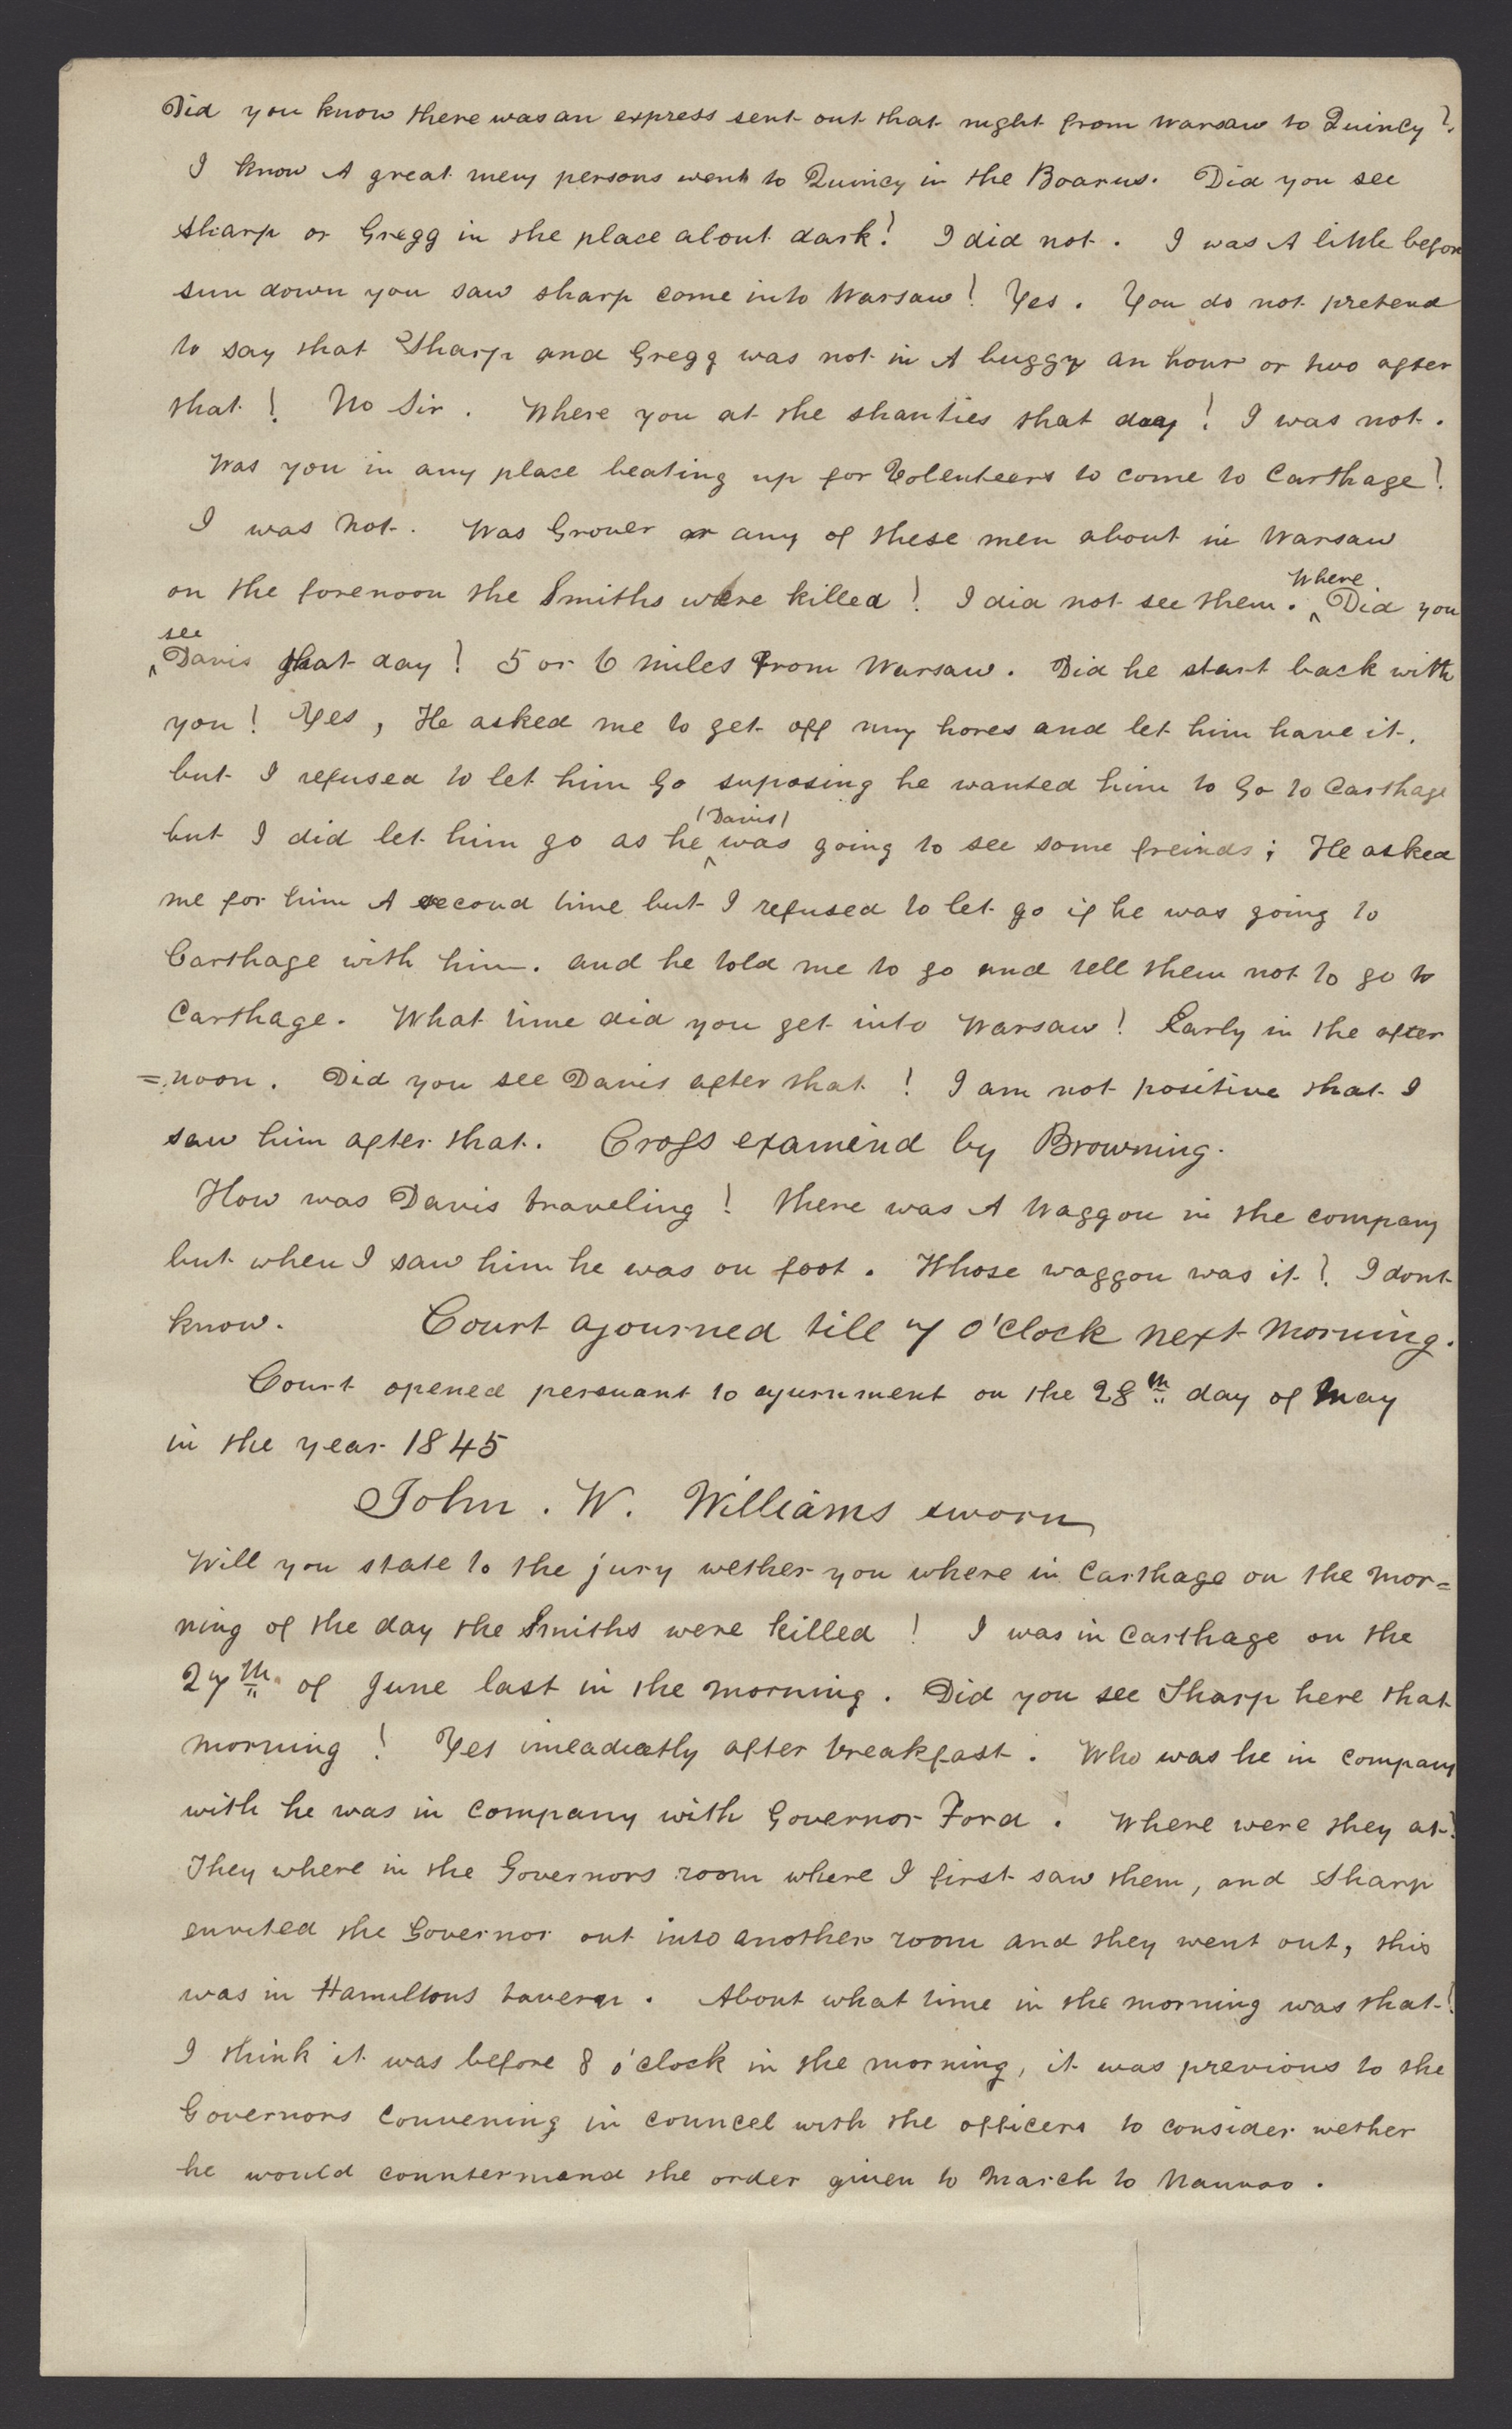 Did you know there was an express sent out that night from Warsaw to Quincy?
I know A great meny persons went to Quincy in the Boarus. Did you see
sharp or Gregg in the place about dark! I did not. I was A little before
sun down you saw sharp come into Warsaw! Yes. You do not pretend
to say that Sharp and Gregg was not in A buggy an hour or two after
that! No Sir. Where you at the shanties that day! I was not.
Was you in any place beating up for Volenteers to come to Carthage!
I was Not. Was Grover or any of these men about in Warsaw
on the forenoon the Smiths were killed! I did not see them. Where Did you
see Davis that day! 5 or 6 miles from Warsaw. Did he start back with
you! Yes, He asked me to get off my hores and let him have it,
but I refused to let him Go suposing he wanted him to Go to Carthage
but I did let him go as he (Davis) was going to see some freinds; He asked
me for him A second time but I refused to let go if he was going to
Carthage with him. and he told me to go and tell them not to go to
Carthage. What time did you get into Warsaw! Early in the after
=noon. Did you see Davis after that! I am not positive that I
saw him after that. Cross examind by Browning.
How was Davis traveling! there was A Waggon in the company
but when I saw him he was on foot. Whose waggon was it? I dont
know. Court ajourned till 7 O'Clock next Morning.
Court opened persuant to ajurnment on the 28th day of May
in the year 1845
John. W. Williams sworn
Will you state to the jury wether you where in Carthage on the mor=
ning of the day the Smiths were killed! I was in Carthage on the
27th of June last in the morning. Did you see Sharp here that
morning! Yes imeadiatly after breakfast. Who was he in company
with he was in company with Governor Ford. Where were they at?
They where in the Governors room where I first saw them, and Sharp
envited the Governor out into another room and they went out, this
was in Hamiltons tavern. About what time in the morning was that!
I think it was before 8 o'clock in the morning, it was previous to the
Governors Convening in councel with the officers to consider wether
he would countermand the order given to March to Nauvoo.